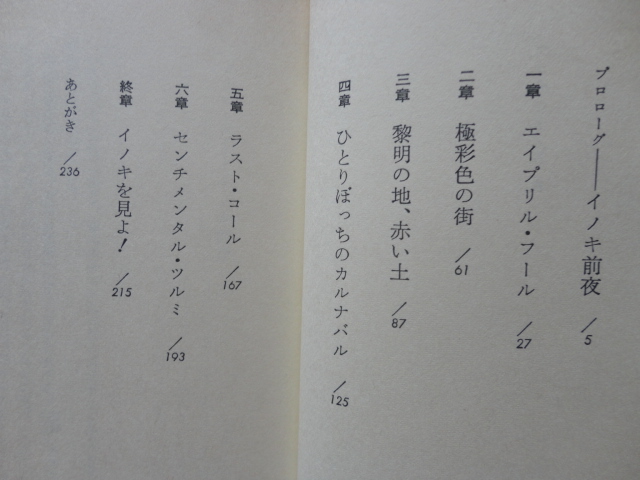 プロローグ——イノキ前夜 /5
一章 エイプリル・フール /27
二章 極彩色の街 /61
三章 黎明の地、赤い土 /87
四章 ひとりぽっちのカルナバル /125
五章 ラスト・コール /167
六章 センチメンタル・ツルミ /193
終章 イノキを見よ! /215
あとがき /236